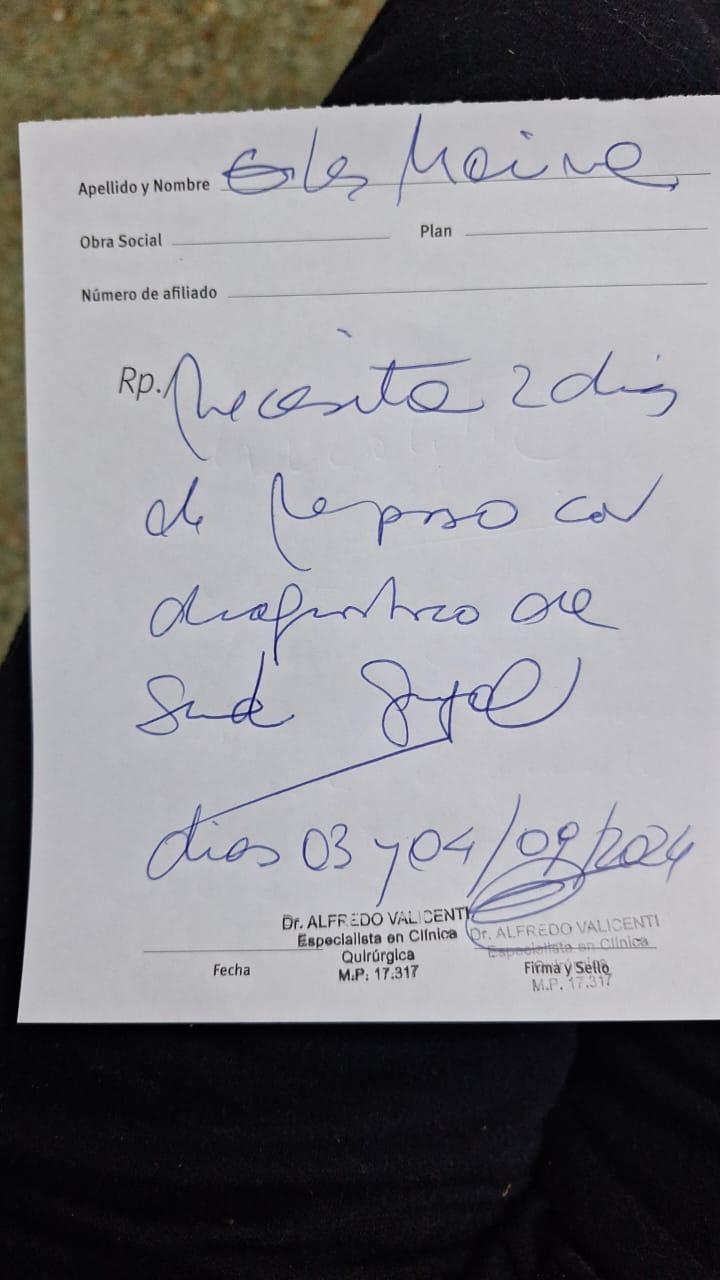 Apellido y Nombre
Obra Social Plan
Número de afiliado
Rp. Necesita 2 dias
de reposo con
diagnostico de
dias 03 y 04/09/2024
Dr. ALFREDO VALICENTI
Especialista en Clínica
Quirúrgica
M.P: 17.317
Dr. ALFREDO VALICENTI
Especialista en Clínica
Quirúrgica
M.P. 17.317
Fecha Firma y Sello